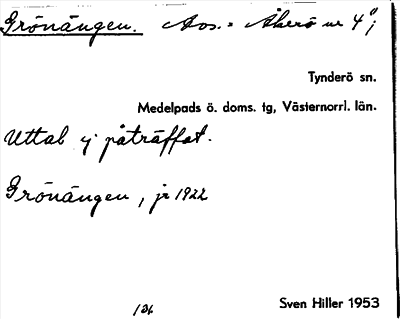 Grönängen. Avs. = Åkerö nr 4ⁿ;
Tynderö sn.
Medelpads ö. doms. tg, Västernorrl. län.
Uttal ej påträffat.
Grönängen, jr 1922
Sven Hiller 1953